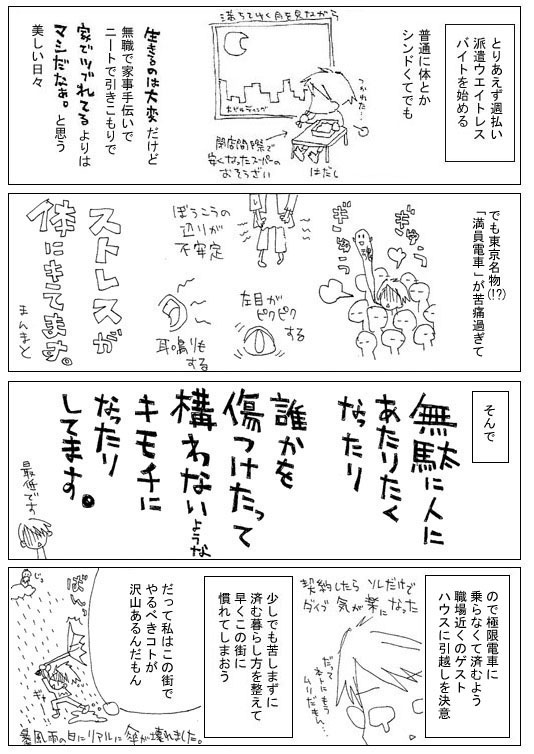 とりあえず週払い
派遣ウエイトレス
バイトを始める
普通に体とか
シンドくてでも
満ちてゆく月を見ながら
つかれた…
ホビルディング
閉店間際で
安くなったスーパーの
おそうざい
はだし
生きるのは大変だけど
無職で家事手伝いで
ニートで引きこもりで
家でツブれてるよりは
マシだたぁ。と思う
美しい日々
でも東京名物(!?)
「満員電車」が苦痛過ぎて
ぎゅう
ぎゅうっ
魂
ぼうこうの
辺りが
不安定
左目が
ピクピク
する
耳鳴りも
する
ストレスが
体にきてます。
まんまと
そんで
無駄に人に
あたりたく
なったり
誰かを
傷つけたって
構わないような
キモチに
なったり
してます。
最低です
ので極限電車に
乗らなくて済むよう
職場近くのゲスト
ハウスに引越しを決意
契約したら ソレだけで
ダイブ 気が楽になった
だって
ホントにもう
ムリだもん…
少しでも苦しまずに
済む暮らし方を整えて
早くこの街に
慣れてしまおう
だって私はこの街で
やるべきコトが
沢山あるんだもん
ばんっ
ギャ
暴風雨の日にリアルに傘が壊れました。